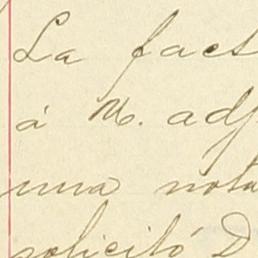 La fact
á M. adj
una nota
solicitó D